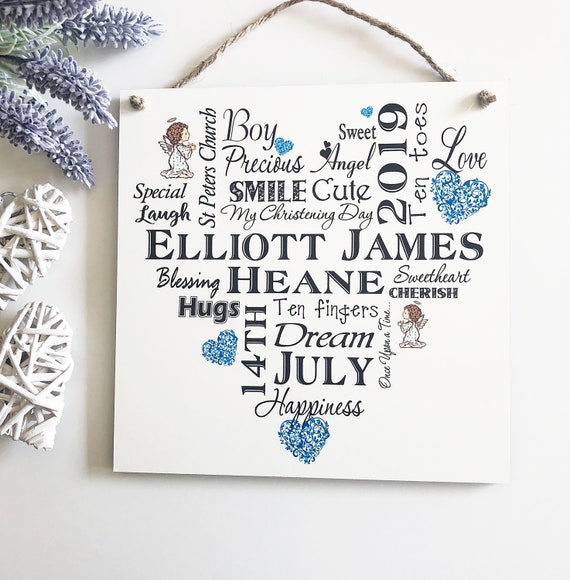 St Peters Church
Boy
Sweet
2019
Ten toes
Love
Precious
Angel
Special
SMILE
Cute
Laugh
My Christening Day
ELLIOTT JAMES
Blessing
HEANE
Sweetheart
CHERISH
Hugs
14TH
Ten fingers
Once Upon a Time...
Dream
JULY
Happiness